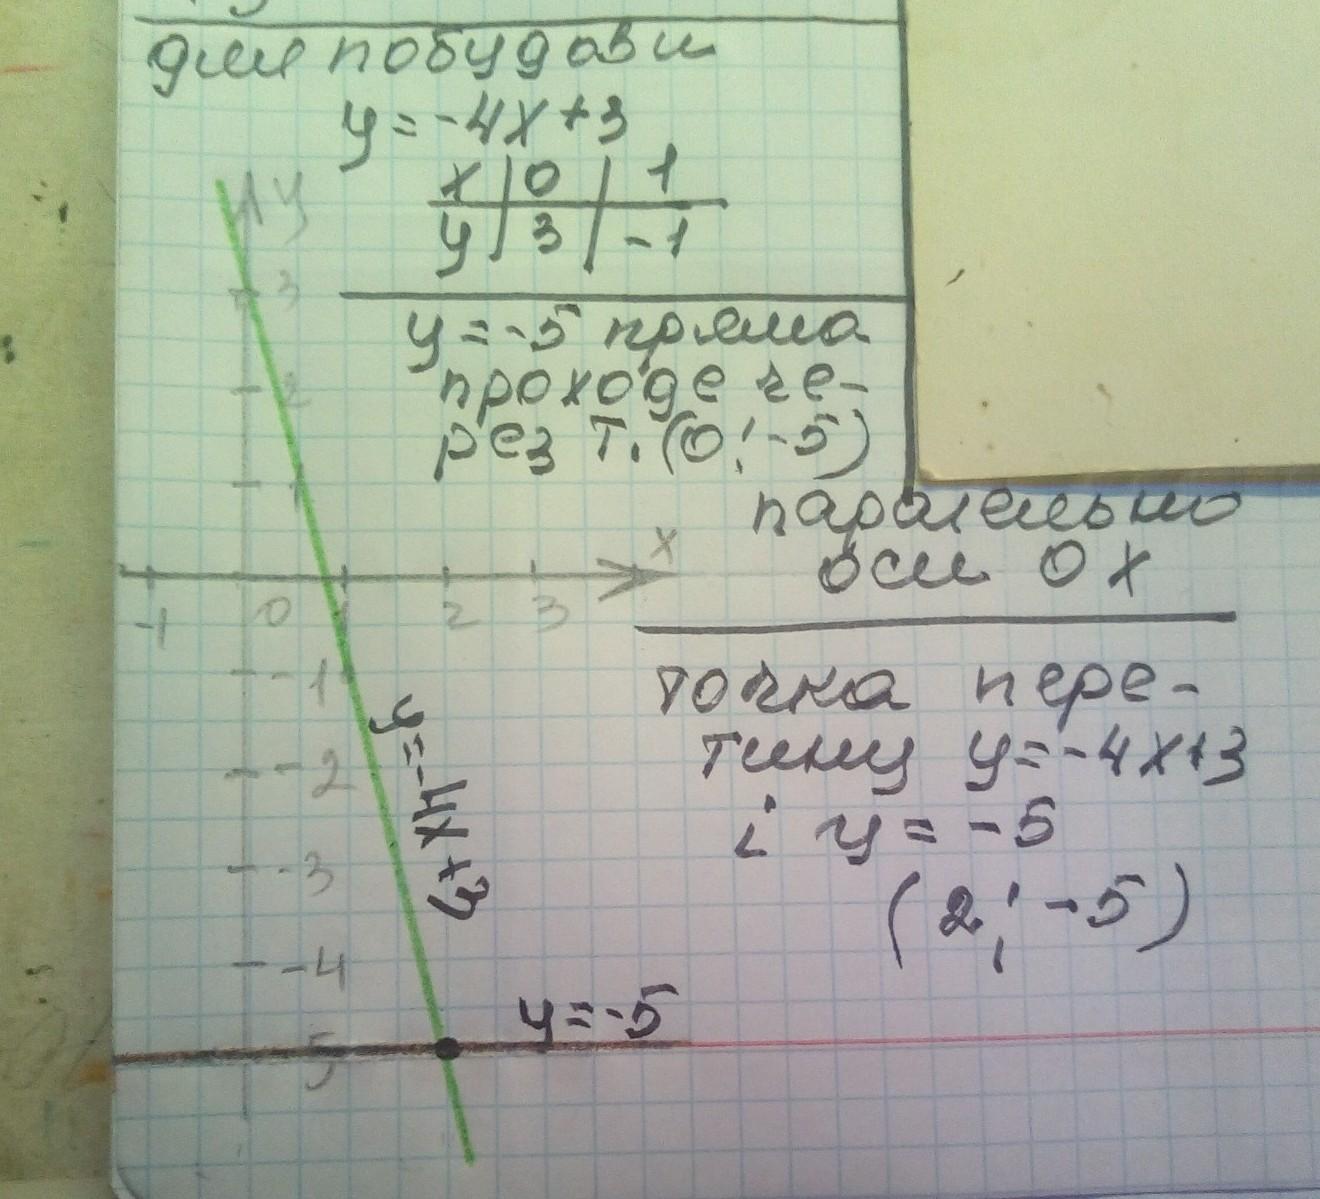 для побудови
y = -4x + 3
x | 0 | 1
y | 3 | -1
y = -5 пряма
проходе че-
рез т. (0; -5)
паралельно
оси ox
точка пере-
тину y = -4x + 3
і y = -5
(2; -5)
y
3
2
1
x
-1 0 1 2 3
-1
-2
-3
-4
5
y = -4x + 3
y = -5